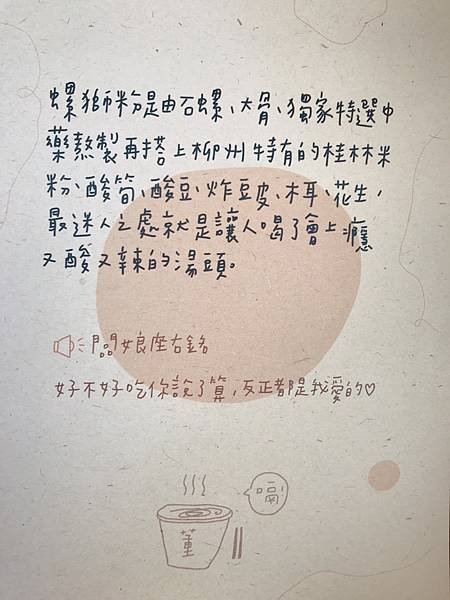 螺獅粉是由石螺、大骨、獨家特選中
藥熬製再搭上柳州特有的桂林米
粉、酸筍、酸豆、炸豆皮、木耳、花生,
最迷人之處就是讓人喝了會上癮
又酸又辣的湯頭。
闆娘座右銘
好不好吃你說了算,反正都是我愛的♡
嗝!
董